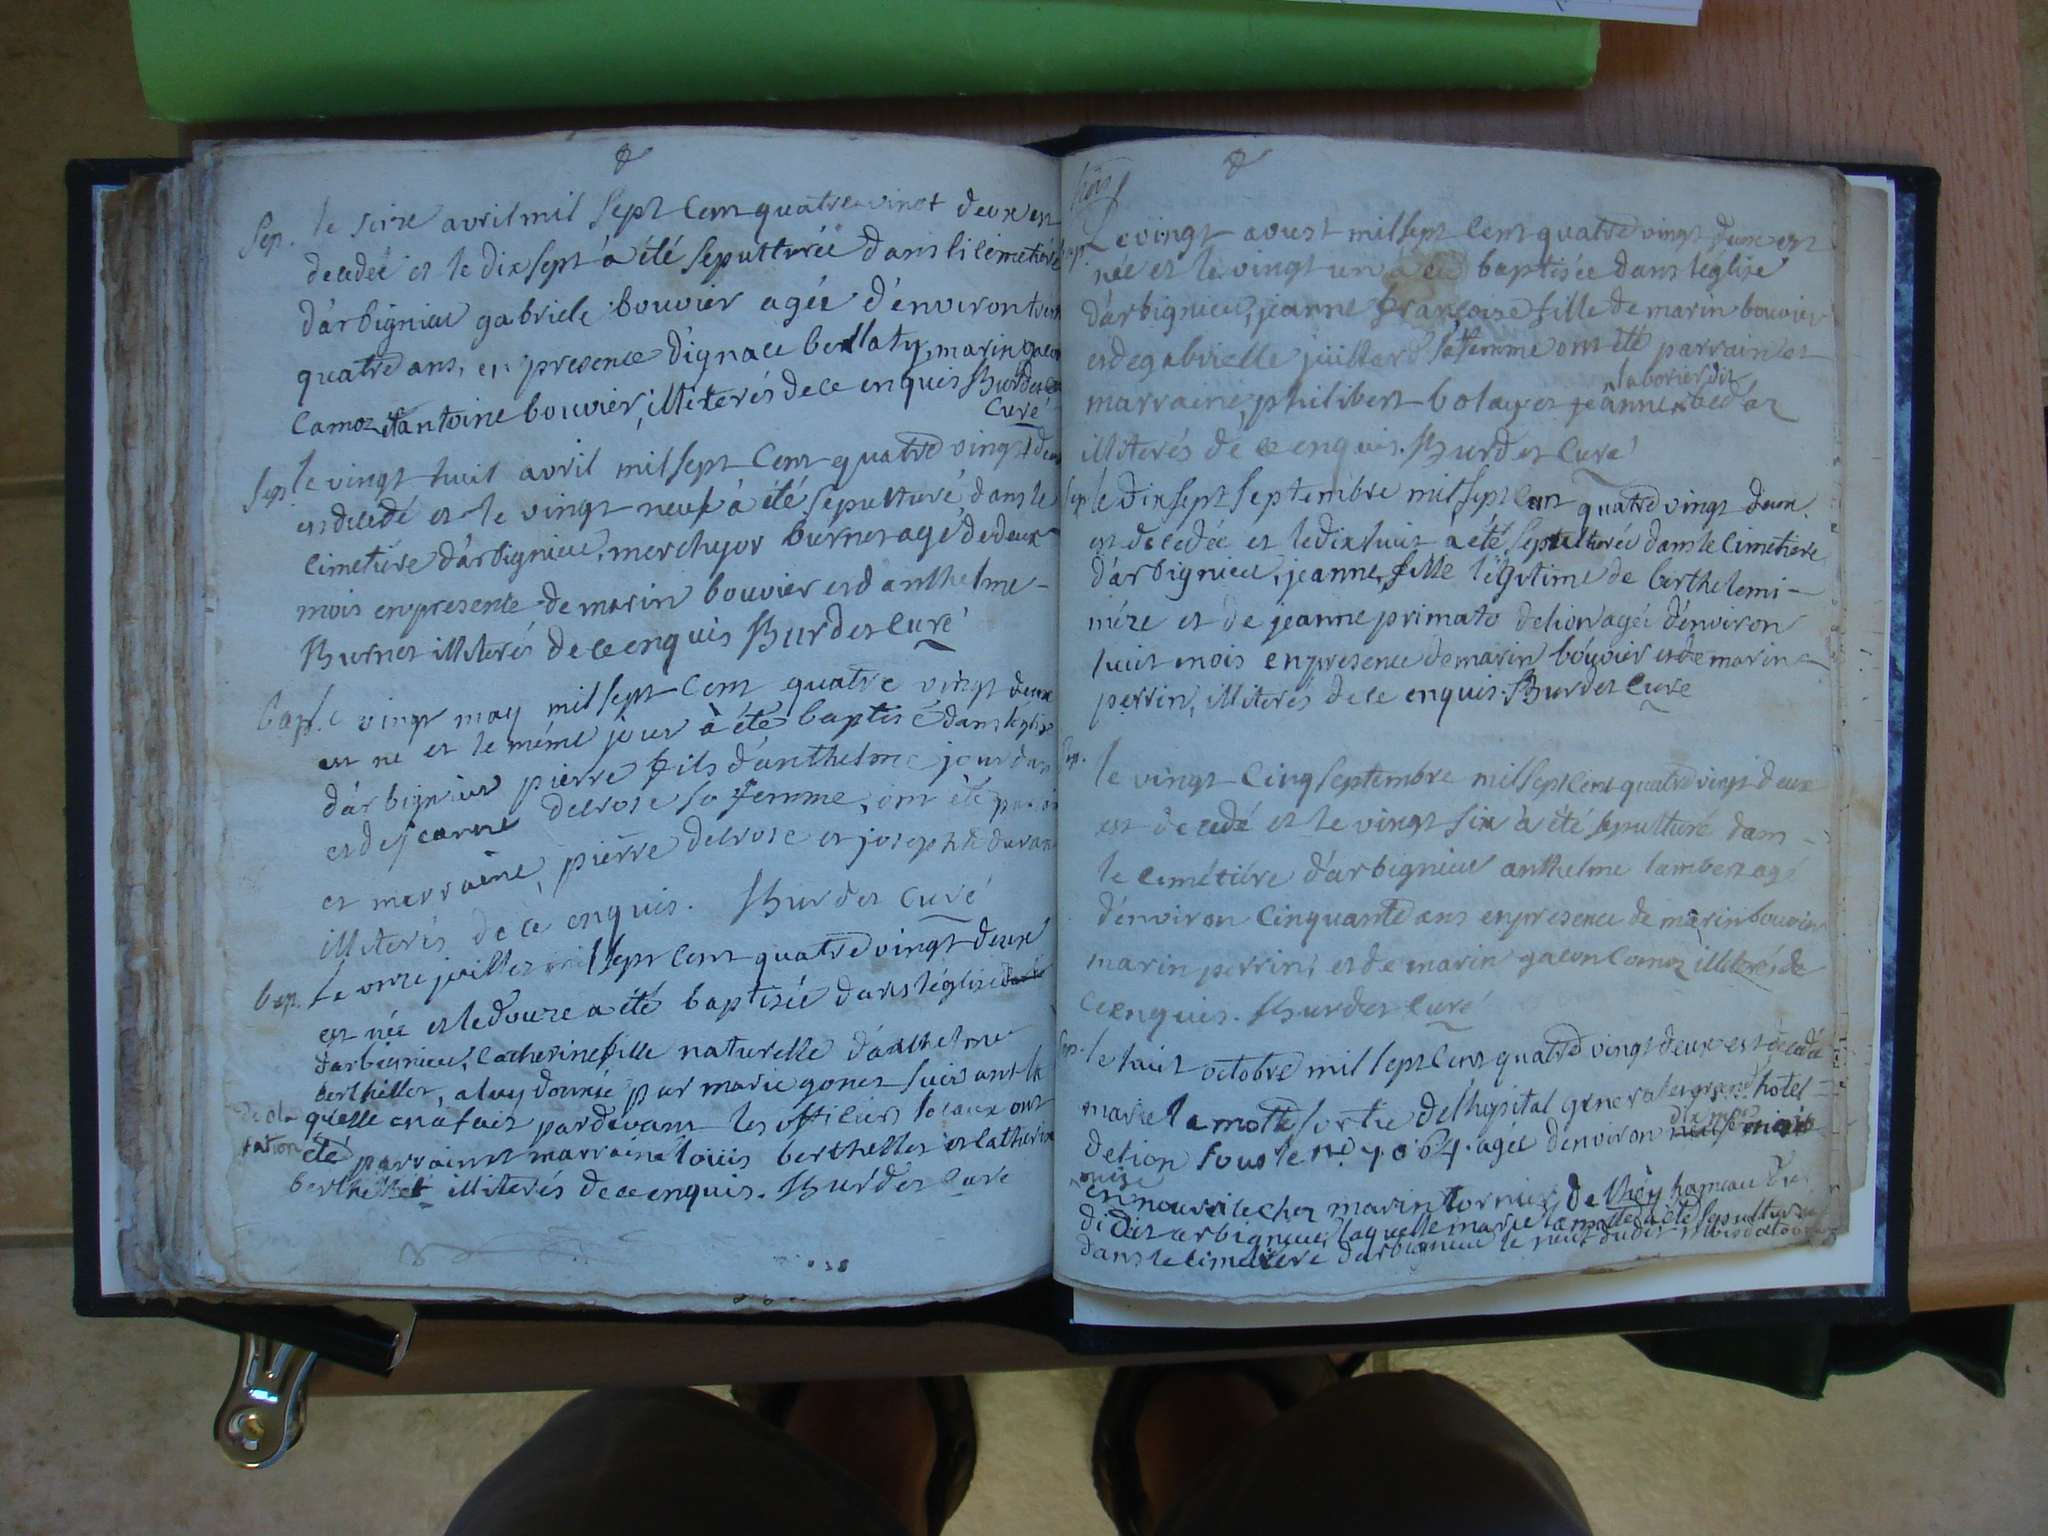 Sep. le seize avril mil sept cent quatre vingt deux est
decedée et le dix sept à été sepulturée dans le cimetière
d'arbignieu gabriele bouvier agée d'environ
quatre ans, en presence d'ignace berlaty, marin gacon
camoz et antoine bouvier, illiterés de ce enquis Burdet
curé
Sep. le vingt huit avril mil sept cent quatre vingt deux
est decedé et le vingt neuf à été sepulturé dans le
cimetière d'arbignieu, merchyor burnet agé de deux
mois en presence de marin bouvier et d'anthelme
Burnet illiterés de ce enquis Burdet curé
bap. le vingt may mil sept cent quatre vingt deux
est né et le même jour à été baptisé dans l'église
d'arbignieu pierre fils d'anthelme jourdan
et de jeanne delrose sa femme, ont été parrain
et marraine, pierre delrose et josephte durand
illiterés de ce enquis. Burdet curé
bap. Le onze juillet mil sept cent quatre vingt deux
est née et le douze a été baptisée dans l'église
d'arbignieu, catherine fille naturelle d'anthelme
berthellet, a luy donnée par marie gonet suivant la
decla quelle en a fait pardevant les officiers locaux ont
ration été parrain et marraine louis berthellet et catherine
berthellet illiterés de ce enquis. Burdet curé
bap. Le vingt aoust mil sept cent quatre vingt deux est
née et le vingt un a été baptisée dans l'église
d'arbignieu, jeanne françoise fille de marin bouvier
et de gabrielle juillard sa femme ont été parrain et
laborier dit
marraine, philibert bolay et jeanne
illiterés de ce enquis. Burdet curé
Sep. le dix sept septembre mil sept cent quatre vingt deux
est decedée et le dix huit à été sepulturée dans le cimetiere
d'arbignieu, jeanne, fille légitime de berthelemi
mére et de jeanne primato de lion agée d'environ
huit mois en presence de marin bouvier et de marin
perrin, illiterés de ce enquis. Burdet curé
Sep. le vingt cinq septembre mil sept cent quatre vingt deux
est decedé et le vingt six à été sepulturé dans
le cimétiére d'arbignieu anthelme lambert agé
d'environ cinquante ans en presence de marin bouvier
marin perrin, et de marin gacon camoz illiterés de
ce enquis. Burdet curé
Sep. le huit octobre mil sept cent quatre vingt deux est decedée
marie lamotte sortie de l'hopital general et grand hotel
de lion sous le n° agée d'environ
en nourrice chez marin tornier de thoy hameau du
dit arbignieu laquelle marie lamotte à été sepulturée
dans le cimetiere d'arbignieu le neuf dudit mois d'octobre